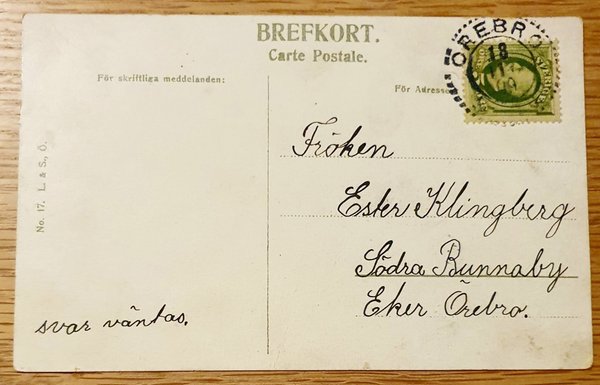 BREFKORT.
Carte Postale.
För skriftliga meddelanden:
För Adressen
ÖREBRO
18
Fröken
Ester Klingberg
Södra Runnaby
Eker Örebro.
svar väntas.
No. 17. L. & S., Ö.